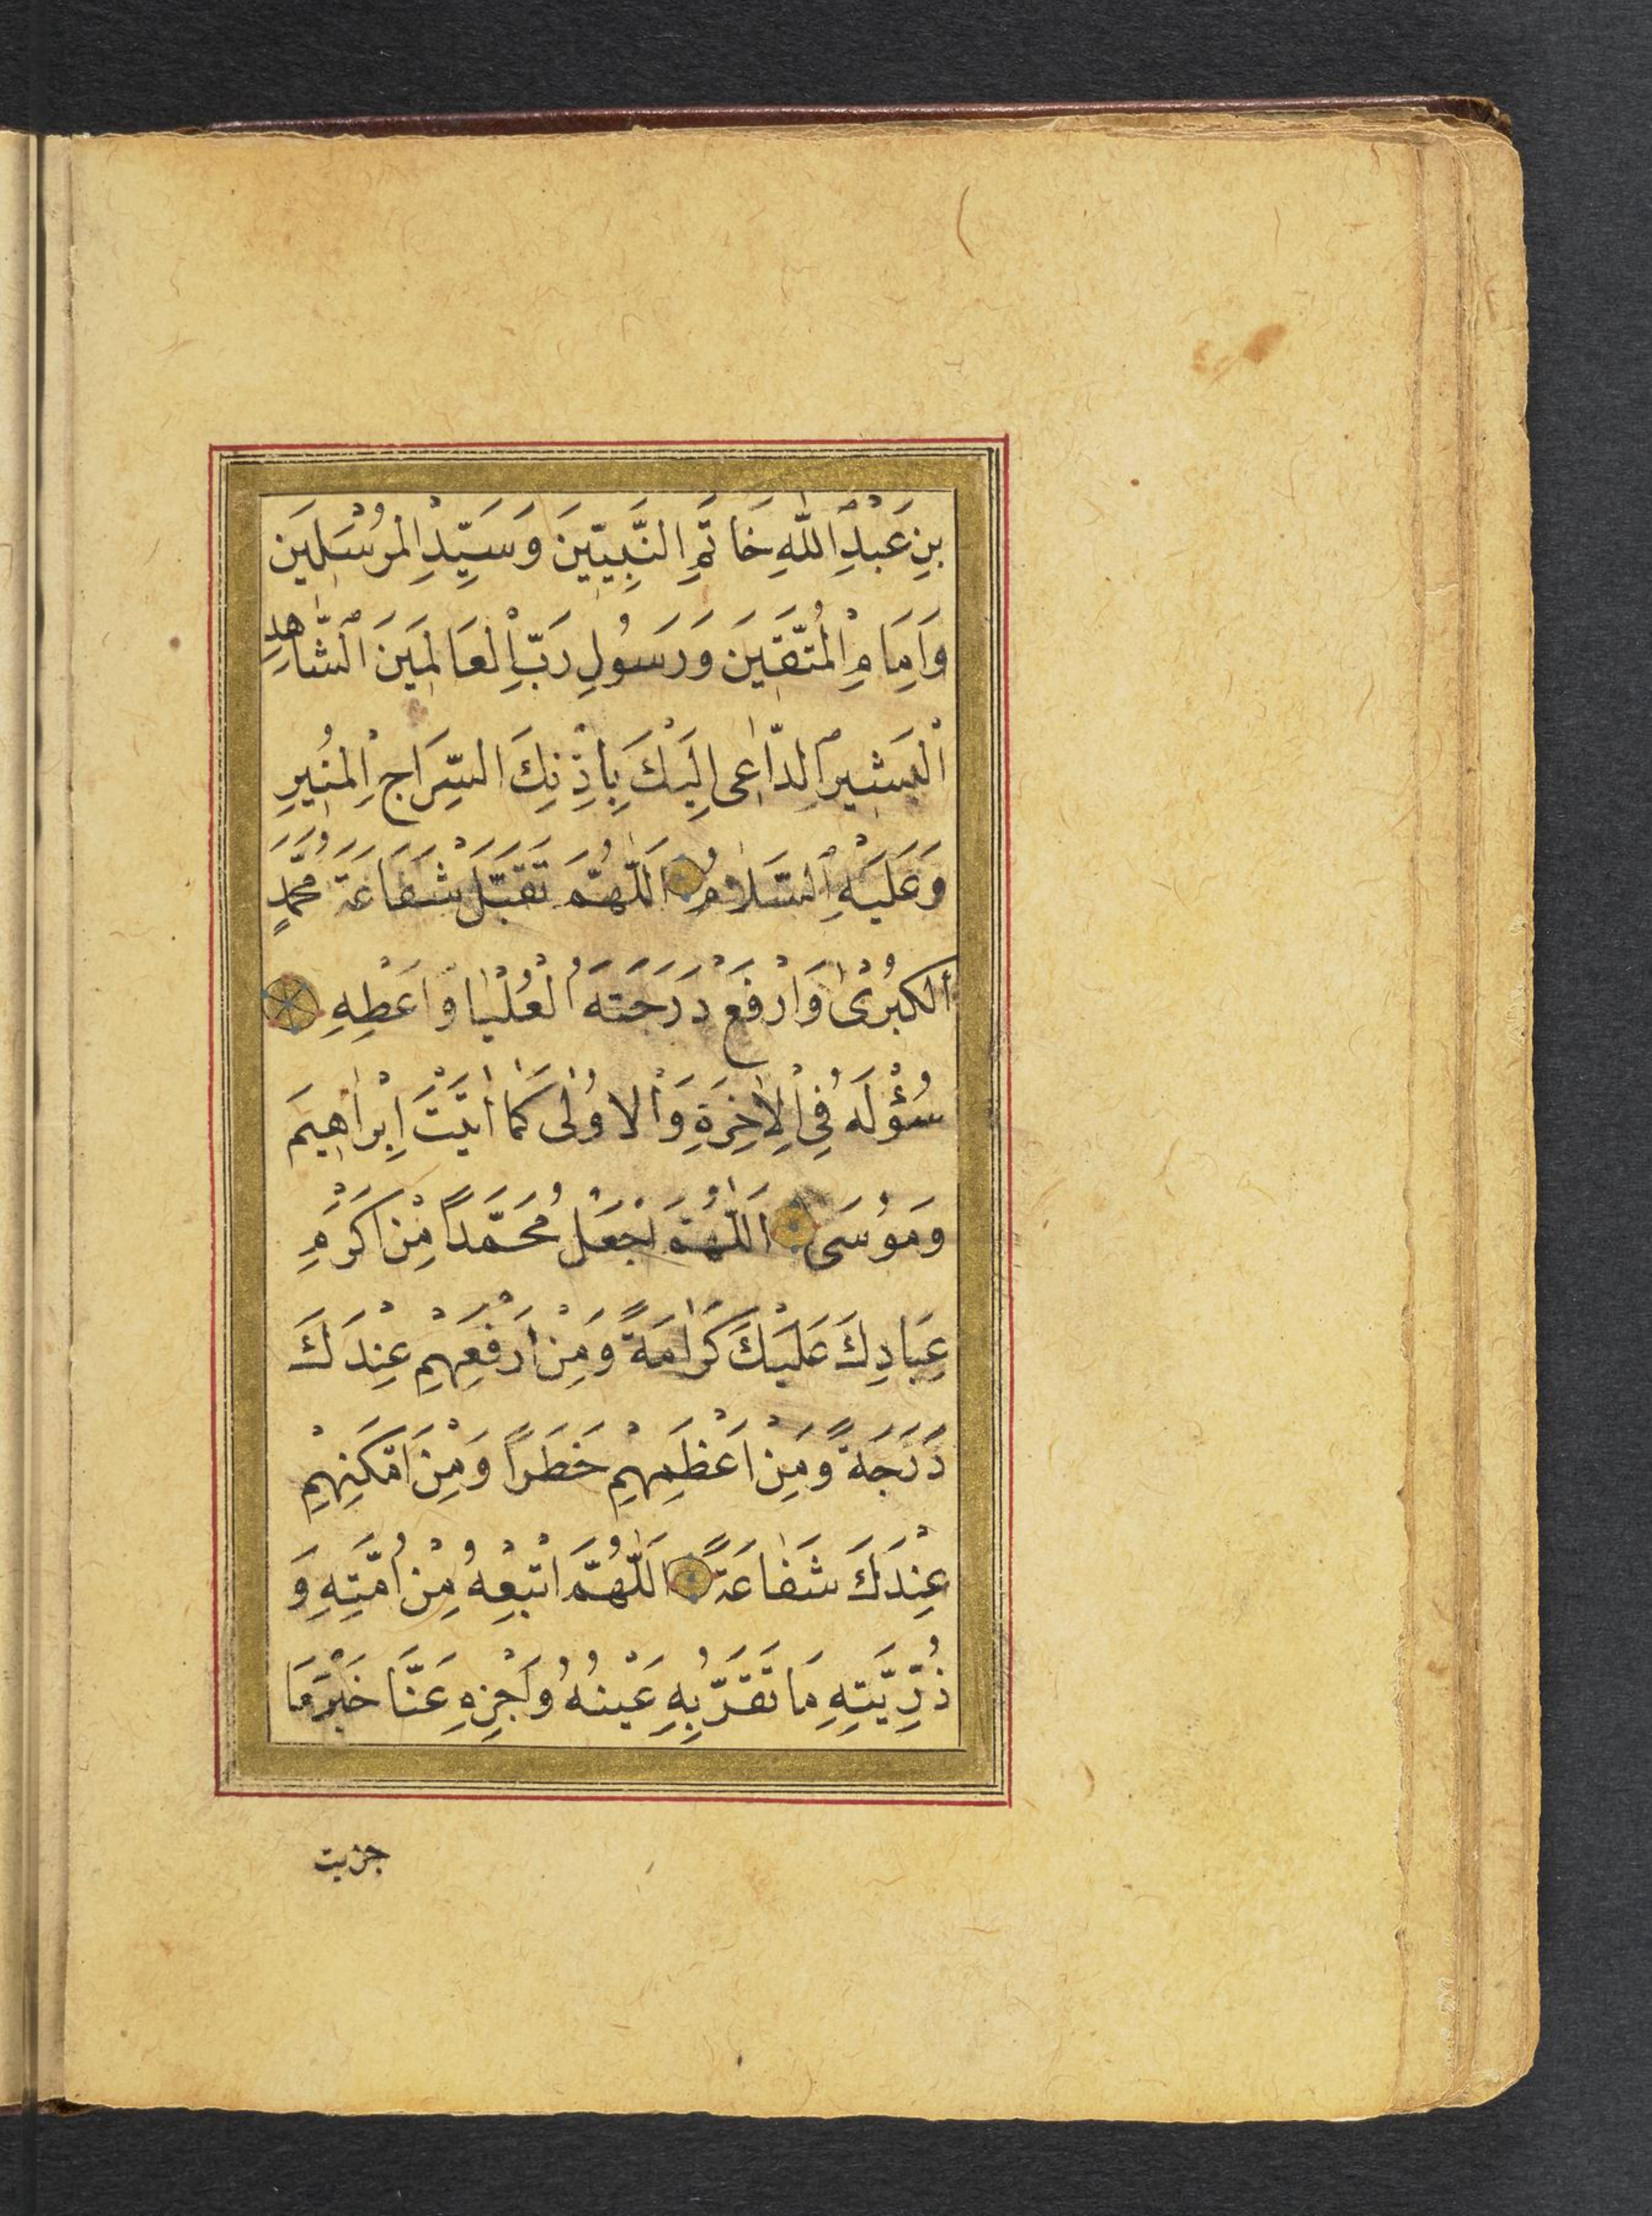 بِنِ عَبْدِ اللّٰهِ خَاتَمِ النَّبِيّينَ وَسَيِّدِ الْمُرْسَلِينَ
وَاِمَامِ الْمُتَّقِينَ وَرَسُولِ رَبِّ الْعَالَمِينَ الشَّاهِدِ
الْبَشِيرِ الدَّاعِى اِلَيْكَ بِاِذْنِكَ السِّرَاجِ الْمُنِيرِ
وَعَلَيْهِ السَّلَامُ اَللّٰهُمَّ تَقَبَّلْ شَفَاعَةَ مُحَمَّدٍ
الْكُبْرٰى وَارْفَعْ دَرَجَتَهُ الْعُلْيَا وَاَعْطِهِ
سُؤْلَهُ فِى الْاٰخِرَةِ وَالْاُولٰى كَمَا اٰتَيْتَ اِبْرٰاهِيمَ
وَمُوسَى اَللّٰهُمَّ اجْعَلْ مُحَمَّداً مِنْ اَكْرَمِ
عِبَادِكَ عَلَيْكَ كَرٰامَةً وَمِنْ اَرْفَعِهِمْ عِنْدَكَ
دَرَجَةً وَمِنْ اَعْظَمِهِمْ خَطَراً وَمِنْ اَمْكَنِهِمْ
عِنْدَكَ شَفَاعَةً اَللّٰهُمَّ اتْبِعْهُ مِنْ اُمَّتِهِ وَ
ذُرِّيَّتِهِ مَا تَقَرُّ بِهِ عَيْنُهُ وَاَجْزِهِ عَنَّا خَيْرَ مَا
جزيت